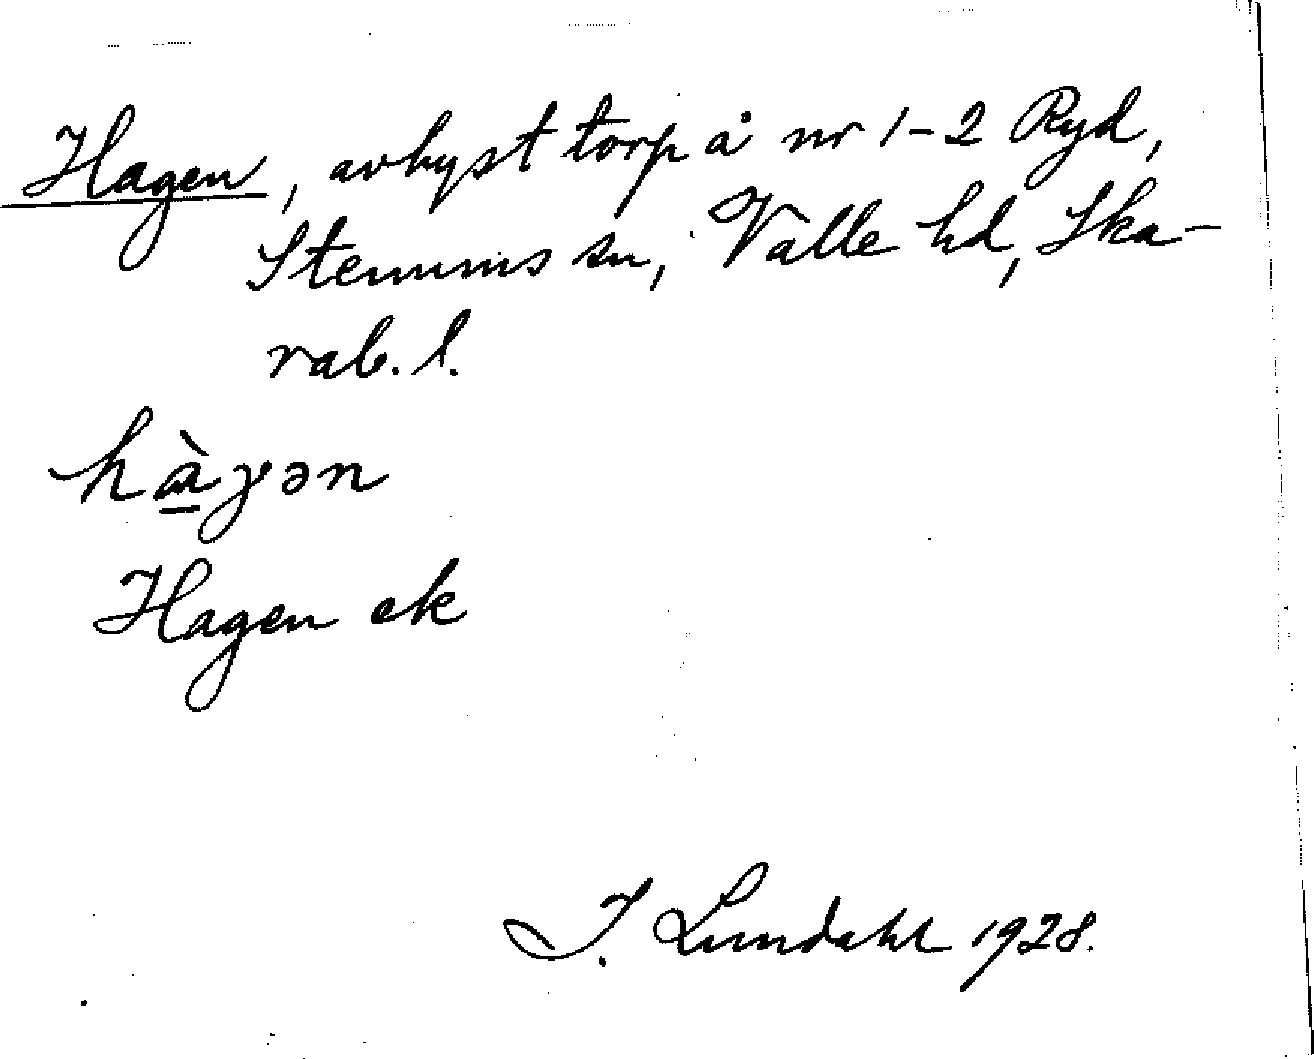 Hagen, avhyst torp å nr 1-2 Ryd,
Stenums sn, Valle hd, Ska-
rab. l.
hàgən
Hagen ek
I. Lundahl 1928.